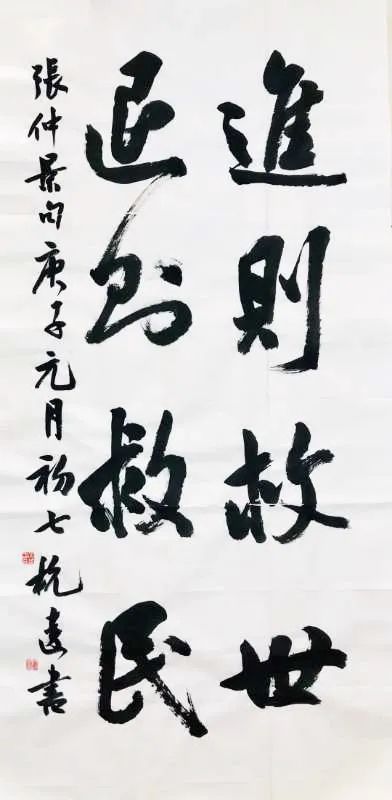 進則救世
退则救民
張仲景句庚子元月初七杭達書